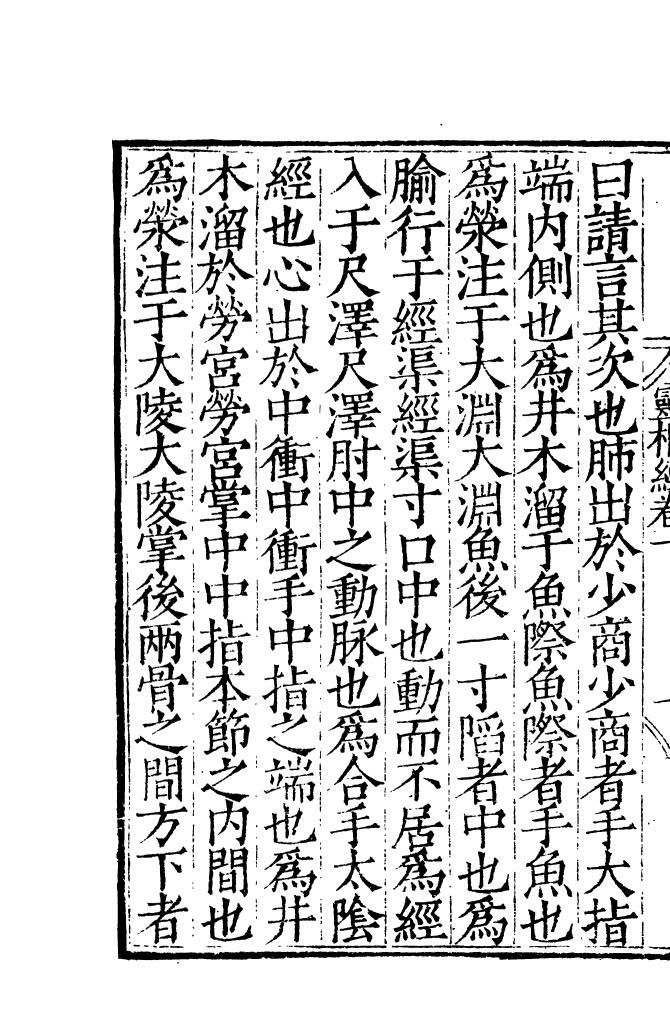 靈樞經卷一
曰請言其次也肺出於少商少商者手大指
端内側也爲井木溜于魚際魚際者手魚也
爲滎注于大淵大淵魚後一寸陷者中也爲
腧行于經渠經渠寸口中也動而不居爲經
入于尺澤尺澤肘中之動脉也爲合手太隂
經也心出於中衝中衝手中指之端也爲井
木溜於勞宮勞宮掌中中指本節之内間也
爲滎注于大陵大陵掌後兩骨之間方下者